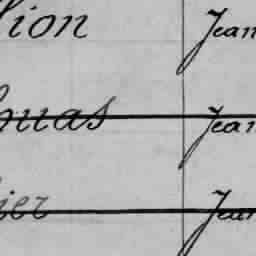 lion Jean
huas Jean
ier Jean